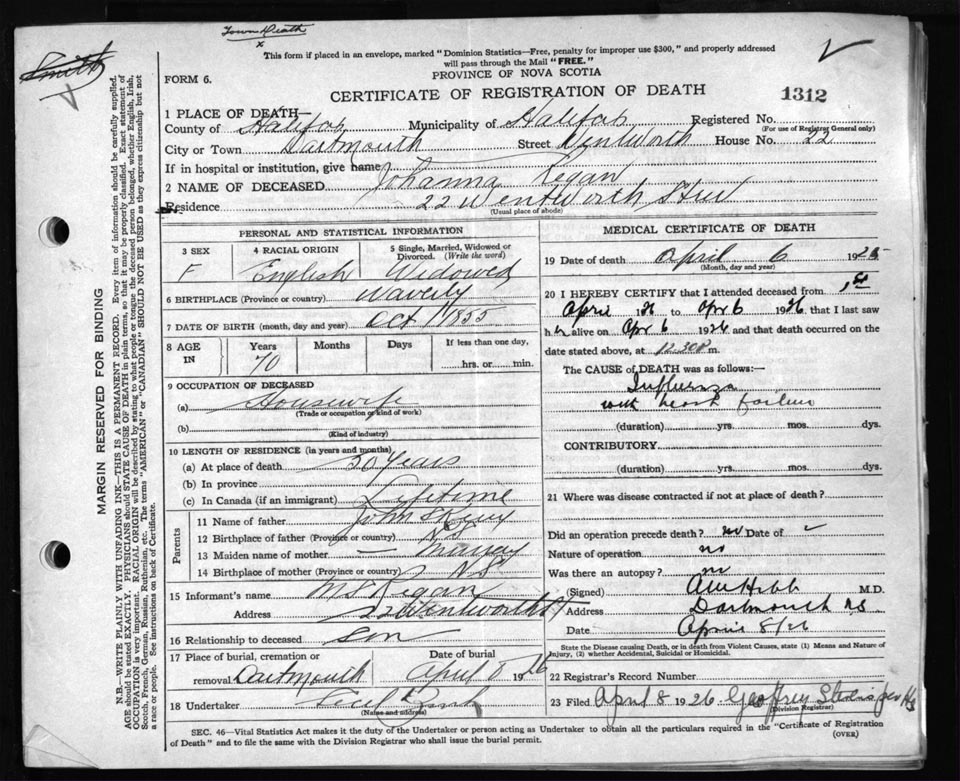 Town Death
x
Smith
This form if placed in an envelope, marked "Dominion Statistics—Free, penalty for improper use $300," and properly addressed
will pass through the Mail "FREE."
FORM 6.
PROVINCE OF NOVA SCOTIA
CERTIFICATE OF REGISTRATION OF DEATH
1312
1 PLACE OF DEATH—
County of Halifax Municipality of Halifax Registered No.
(For use of Registrar General only)
City or Town Dartmouth Street Wentworth House No. 22
If in hospital or institution, give name
2 NAME OF DECEASED Johanna Regan
Residence 22 Wentworth Street
(Usual place of abode)
PERSONAL AND STATISTICAL INFORMATION
3 SEX F
4 RACIAL ORIGIN English
5 Single, Married, Widowed or Divorced. (Write the word) Widowed
6 BIRTHPLACE (Province or country) Waverly
7 DATE OF BIRTH (month, day and year) Oct 1 1855
8 AGE IN Years 70 Months Days If less than one day, ....hrs. or....min.
9 OCCUPATION OF DECEASED
(a) Housewife
(Trade or occupation or kind of work)
(b)
(Kind of industry)
10 LENGTH OF RESIDENCE (in years and months)
(a) At place of death 50 Years
(b) In province
(c) In Canada (if an immigrant) Lifetime
Parents
11 Name of father John
12 Birthplace of father (Province or country) N.S.
13 Maiden name of mother —
14 Birthplace of mother (Province or country) N.S.
15 Informant's name Regan
Address 22 Wentworth St
16 Relationship to deceased Son
17 Place of burial, cremation or removal Dartmouth Date of burial April 8 1926
18 Undertaker
(Name and address)
MEDICAL CERTIFICATE OF DEATH
19 Date of death April 6 192
(Month, day and year)
20 I HEREBY CERTIFY that I attended deceased from 1st
April 1926 to Apr 6 1926 that I last saw
her alive on Apr 6 1926 and that death occurred on
date stated above, at 12.30 P m.
The CAUSE of DEATH was as follows:—
Influenza
with heart failure
(duration) yrs. mos. dys.
CONTRIBUTORY
(duration) yrs. mos. dys.
21 Where was disease contracted if not at place of death?
Did an operation precede death? no Date of
Nature of operation no
Was there an autopsy? no
(Signed) M.D.
Address Dartmouth NS
Date April 8/26
State the Disease causing Death, or in death from Violent Causes, state (1) Means and Nature of
Injury, (2) whether Accidental, Suicidal or Homicidal.
22 Registrar's Record Number
23 Filed April 8 1926 Geoffrey
(Division Registrar)
SEC. 46—Vital Statistics Act makes it the duty of the Undertaker or person acting as Undertaker to obtain all the particulars required in the "Certificate of Registration
of Death" and to file the same with the Division Registrar who shall issue the burial permit.
(OVER)
MARGIN RESERVED FOR BINDING
N.B.—WRITE PLAINLY WITH UNFADING INK—THIS IS A PERMANENT RECORD. Every item of information should be carefully supplied.
AGE should be stated EXACTLY. PHYSICIANS should STATE CAUSE OF DEATH in plain terms, so that it may be properly classified. Exact statement of
OCCUPATION is very important. RACIAL ORIGIN will be described by stating to what people or tongue the deceased person belonged, whether English, Irish,
Scotch, French, German, Russian, Ruthenian, etc. The terms "AMERICAN" or "CANADIAN" SHOULD NOT BE USED as they express citizenship but not
a race or people. See instructions on back of Certificate.